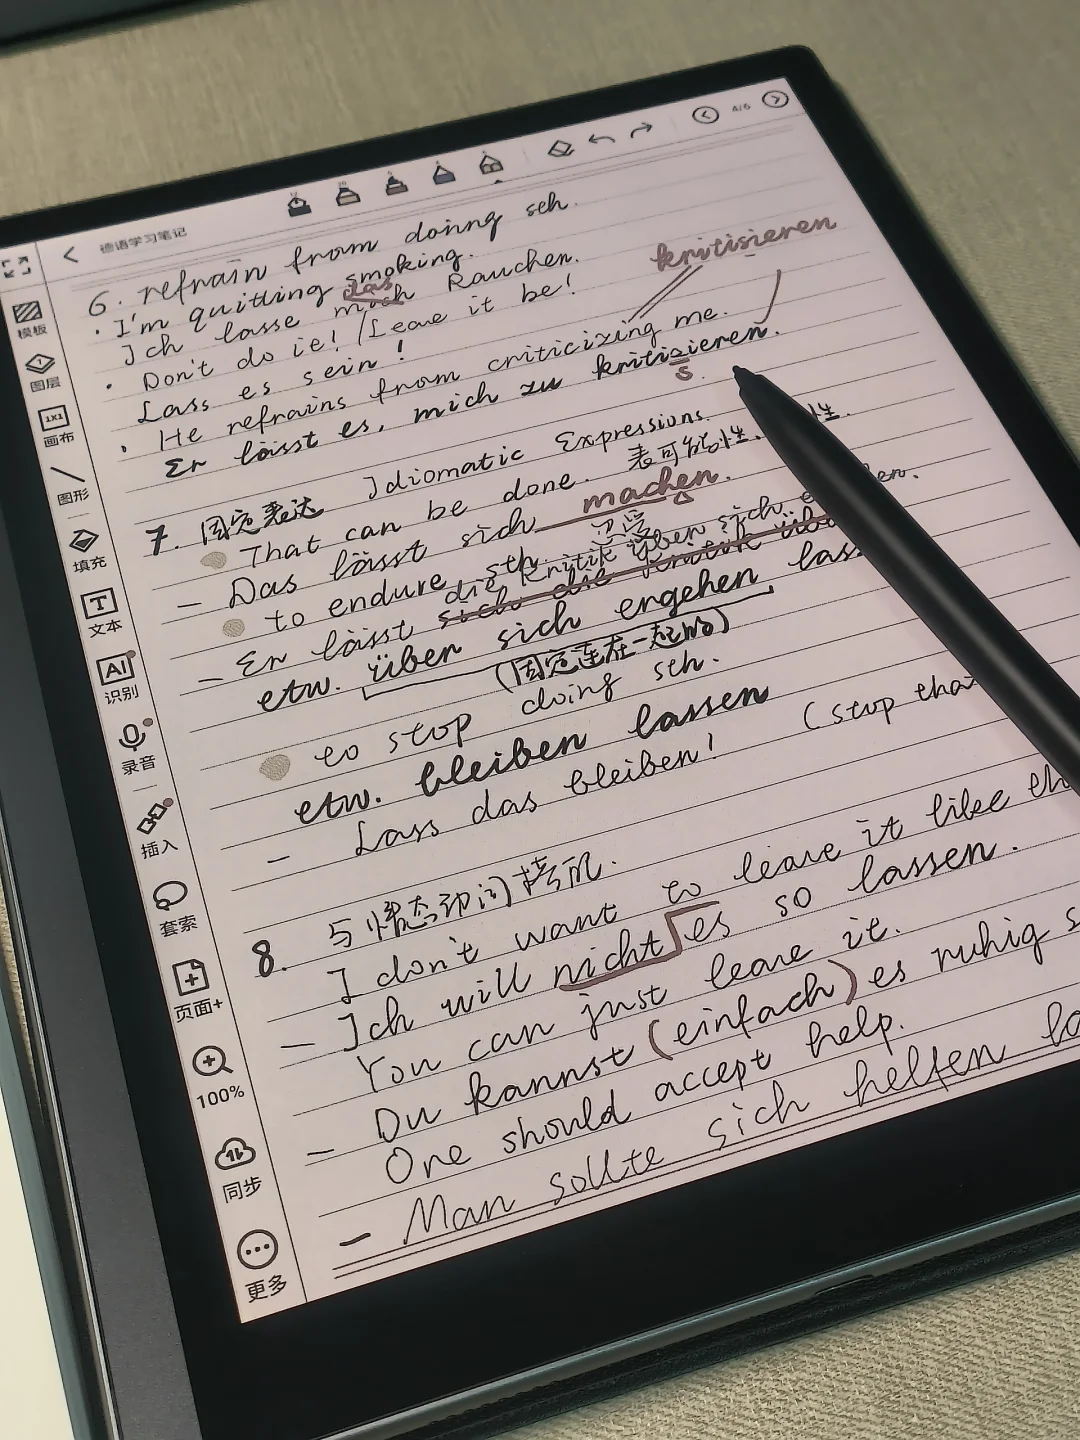 4/6
德语学习笔记
模板
图层
画布
图形
填充
文本
识别
录音
插入
套索
页面+
100%
同步
更多
1X1
T
AI
6. refrain from doinng sth.
· I'm quitting smoking.
das
Ich lasse mich Rauchen.
· Don't do it! /Leave it be!
Lass es sein!
kritisieren
· He refrains from criticizing me.
Er lässt es, mich zu kritizieren.
s
7. 固定表达 Idiomatic Expressions
That can be done. 表可能性、性.
- Das lässt sich machen.
to endure sth. 忍受
die Kritik über sich
- Er lässt sich die Kritik
etw. über sich ergehen
(固定连在一起的)
to stop doing sth.
etw. bleiben lassen
- Lass das bleiben! (stop
8. 与情态动词搭配.
I don't want to leave it like
- Ich will nicht es so lassen.
You can just leave it.
- Du kannst (einfach) es ruhig
One should accept help.
- Man sollte sich helfen